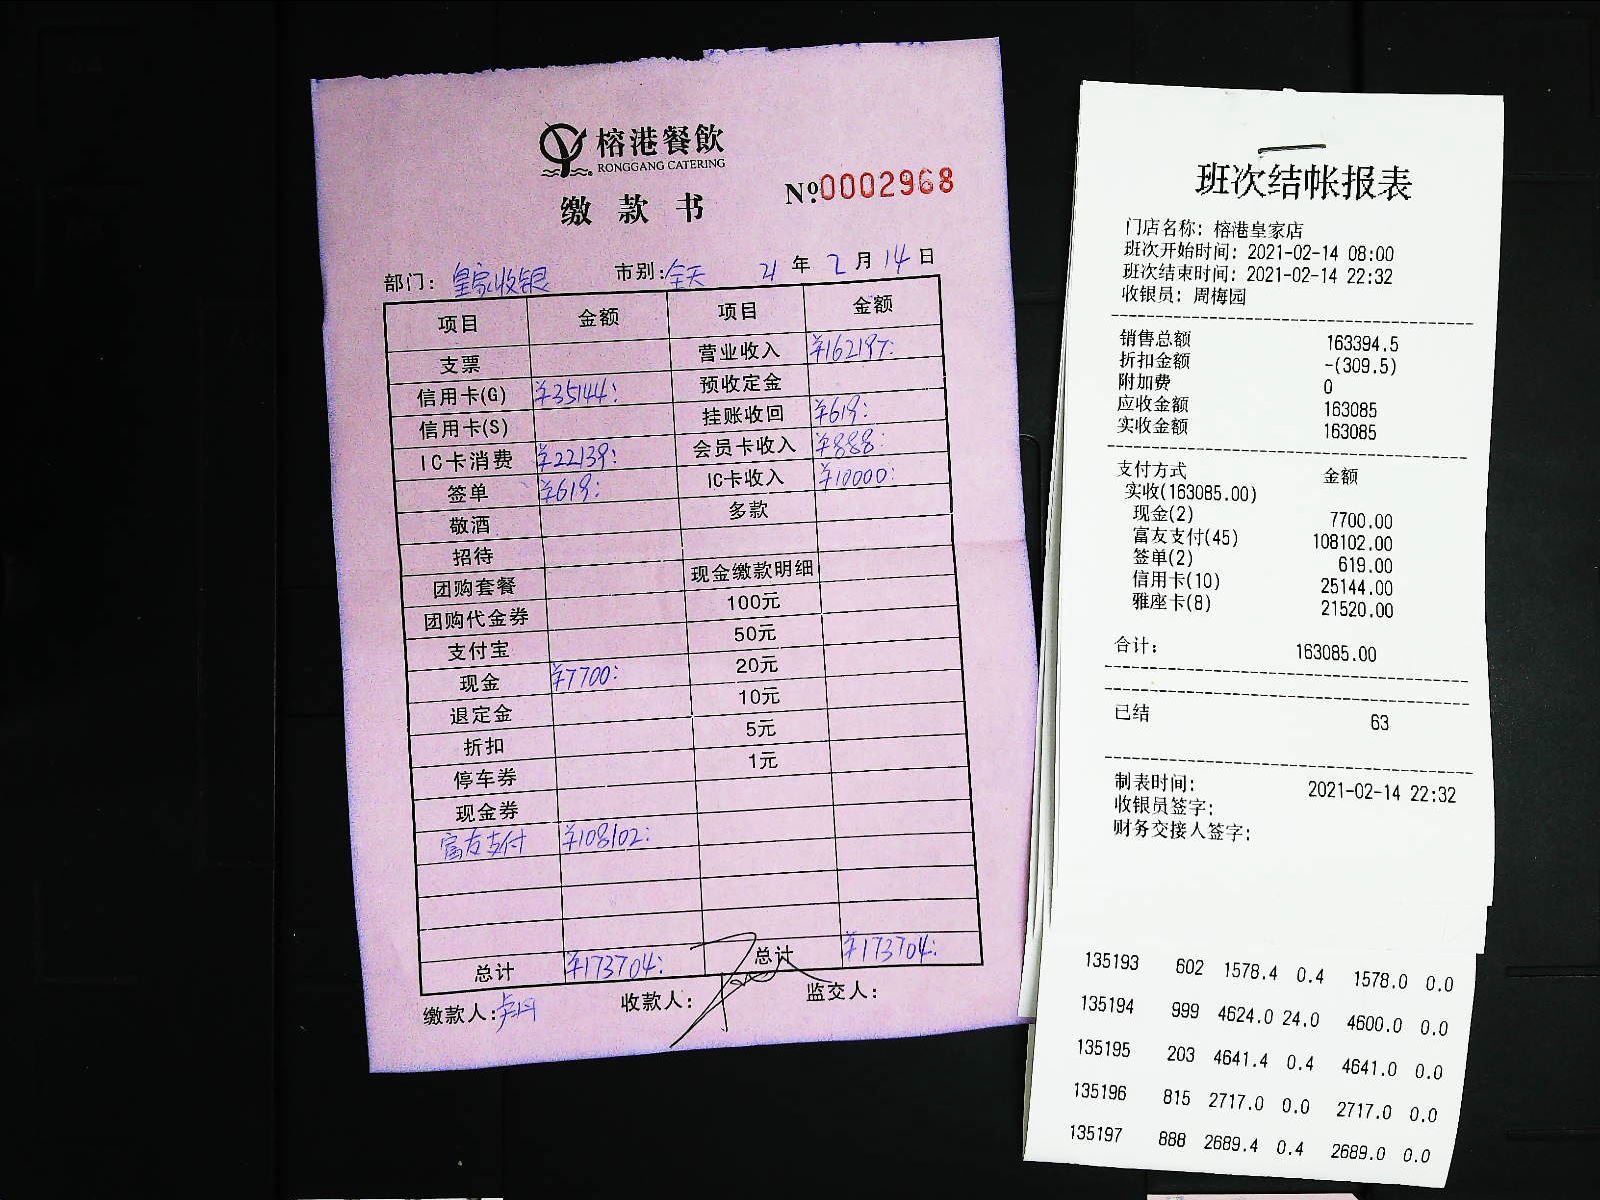 榕港餐飲
RONGGANG CATERING
缴款书
№:0002968
部门: 皇家收银 市别: 全天 21年2月14日
项目 金额 项目 金额
支票 营业收入 ¥162197:
信用卡(G) ¥35144: 预收定金
信用卡(S) 挂账收回 ¥619:
IC卡消费 ¥22139: 会员卡收入 ¥888:
签单 ¥619: IC卡收入 ¥10000:
敬酒 多款
招待
团购套餐 现金缴款明细
团购代金券 100元
支付宝 50元
现金 ¥7700: 20元
退定金 10元
折扣 5元
停车券 1元
现金券
富友支付 ¥108102:
总计 ¥173704: 总计 ¥173704:
缴款人: 收款人: 监交人:
班次结帐报表
门店名称: 榕港皇家店
班次开始时间: 2021-02-14 08:00
班次结束时间: 2021-02-14 22:32
收银员: 周梅园
销售总额 163394.5
折扣金额 -(309.5)
附加费 0
应收金额 163085
实收金额 163085
支付方式 金额
实收(163085.00)
现金(2) 7700.00
富友支付(45) 108102.00
签单(2) 619.00
信用卡(10) 25144.00
雅座卡(8) 21520.00
合计: 163085.00
已结 63
制表时间: 2021-02-14 22:32
收银员签字:
财务交接人签字:
135193 602 1578.4 0.4 1578.0 0.0
135194 999 4624.0 24.0 4600.0 0.0
135195 203 4641.4 0.4 4641.0 0.0
135196 815 2717.0 0.0 2717.0 0.0
135197 888 2689.4 0.4 2689.0 0.0